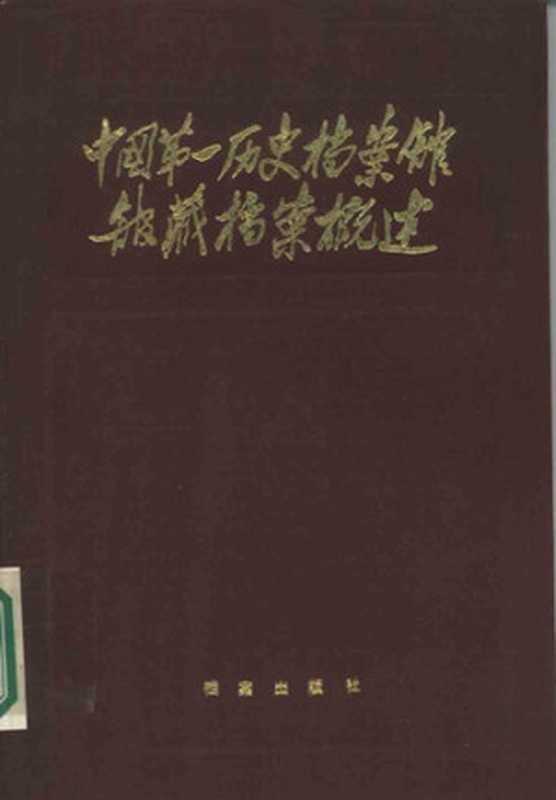 中国第一历史档案馆
馆藏档案概述
档案出版社